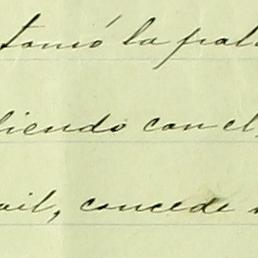 tomó la pala
liendo con el
ail, concede